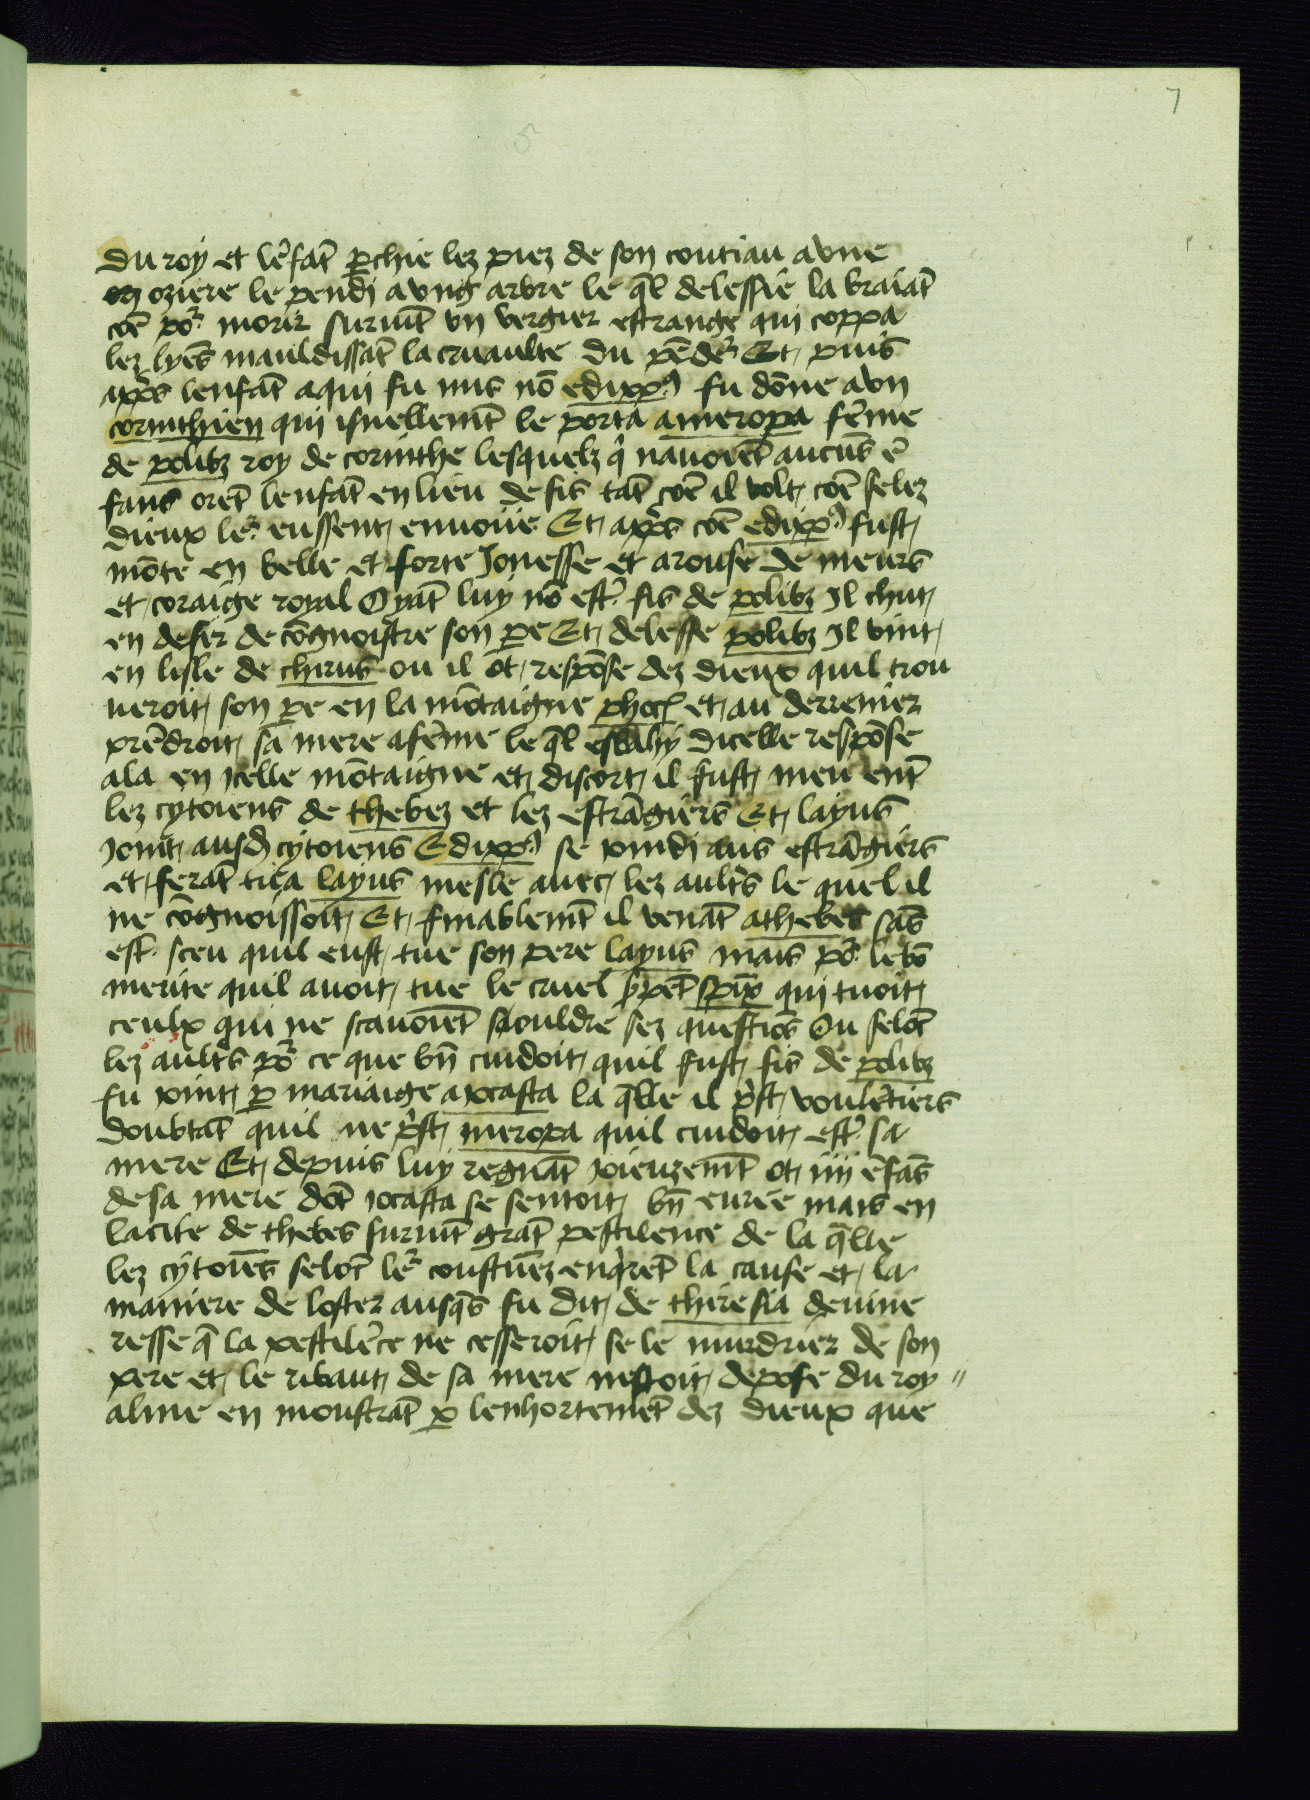 7
5
du roy et lēfāt ꝑchie lez piez de son coutiau avne
oziere le pendi avng arbre le q̄l delessie la braiāt
cōe po᷑ morir suruīt vn vergier estrange qui coppa
lez lyēs mauldissāt la cruaulte du pēde᷑ Et puis
apꝰs lenfāt aqui fu mis nō edippꝰ fu dōne avn
corinthien qui isnellemt̄ le porta ameropa fēme
de polibz roy de corinthe lesquelz q̄ nauoiēt aucūs ē
fans orēt lenfāt en lieu de fis tāt cōe il volt cōe se lez
dieux le᷑ eussent enuoiie Et apꝰs cōe edippꝰ fust
mōte en belle et forte Jonesse et arouse de meurs
et coraige royal Oyāt luy nō est᷑ fis de polibz Jl chut
en desir de cōgnoistre son ꝑe Et delesse polibz Jl vint
en lisle de chirus ou il ot respōse dez dieux quil trou
ueroit son ꝑe en la mōtaigne phocꝭ et au derrenier
prēdroit sa mere afēme le q̄l esbahy dicelle respōse
ala en Jcelle mōtaigne et discort il fust meu ent᷑
lez cytoiens de thebez et lez estrāgiers Et layus
Joint ausꝺ cytoiens Edippꝰ se pindi aus estrāgiers
et ferāt tua layus mesle auec lez aultꝰs le quel il
ne cōgnoissoit Et finablemt̄ il venāt athebes sās
est᷑ sceu quil eust tue son pere layus mais po᷑ le bō
merite quil auoit tue le cruel s̄pēt spīx qui tuoit
ceulx qui ne scauoiēt saouldre sez questiōs Ou selōt
lez aultꝰs po᷑ ce que bn̄ cuidoit quil fust fis de polibz
fu point ꝑ mariaige a jocasta la q̄lle il p̄st voulētiers
doubtāt quil ne p̄st meropa quil cuidoit est᷑ sa
mere Et depuis luy regnāt pieuzemt̄ ot iiii ēfās
de sa mere dōt jocasta se sentoit bn̄ euree mais en
la cite de thebes suruīt grāt pestilence de la q̄lle
lez cytoiēs selōt le᷑ coustūez enq̄rēt la cause et la
maniere de loster ausq̄s fu dit de thiresia deuine
resse q̄ la pestilēce ne cesseroit se le murdrier de son
pere et le ribaut de sa mere nestoit depose du roy //
alme en moustrāt ꝑ lenhortemēt dez dieux que